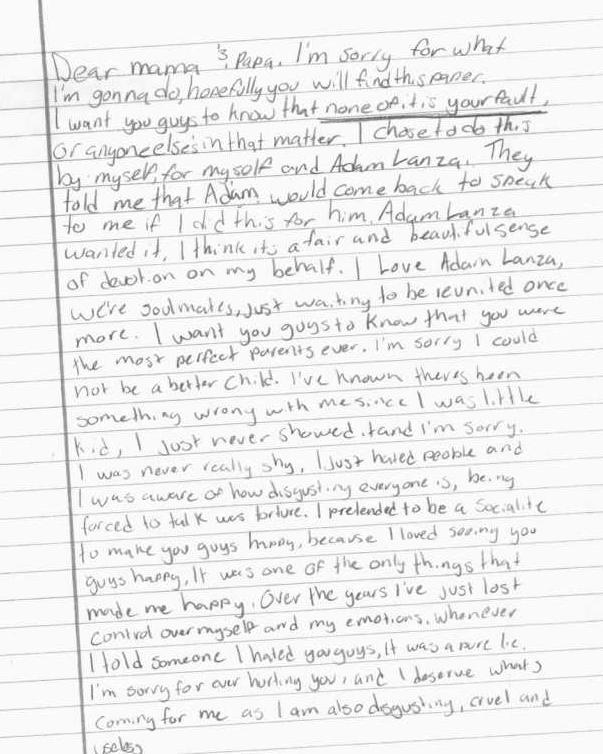 Dear mama & Papa. I'm sorry for what
I'm gonna do, hopefully you will find this paper.
I want you guys to know that none of it is your fault,
or anyone else's in that matter. I chose to do this
by myself, for myself and Adam Lanza. They
told me that Adam would come back to speak
to me if I did this for him. Adam Lanza
wanted it, I think its a fair and beautiful sense
of devotion on my behalf. I Love Adam Lanza,
we're soulmates, just waiting to be reunited once
more. I want you guys to know that you were
the most perfect parents ever. I'm sorry I could
not be a better child. I've known theres been
something wrong with me since I was little
kid, I just never showed it and I'm sorry.
I was never really shy, I just hated people and
I was aware of how disgusting everyone is, being
forced to talk was torture. I pretended to be a socialite
to make you guys happy, because I loved seeing you
guys happy, It was one of the only things that
made me happy. Over the years I've just lost
control over myself and my emotions. Whenever
I told someone I hated you guys, it was a pure lie.
I'm sorry for ever hurting you, and I deserve whats
coming for me as I am also disgusting, cruel and